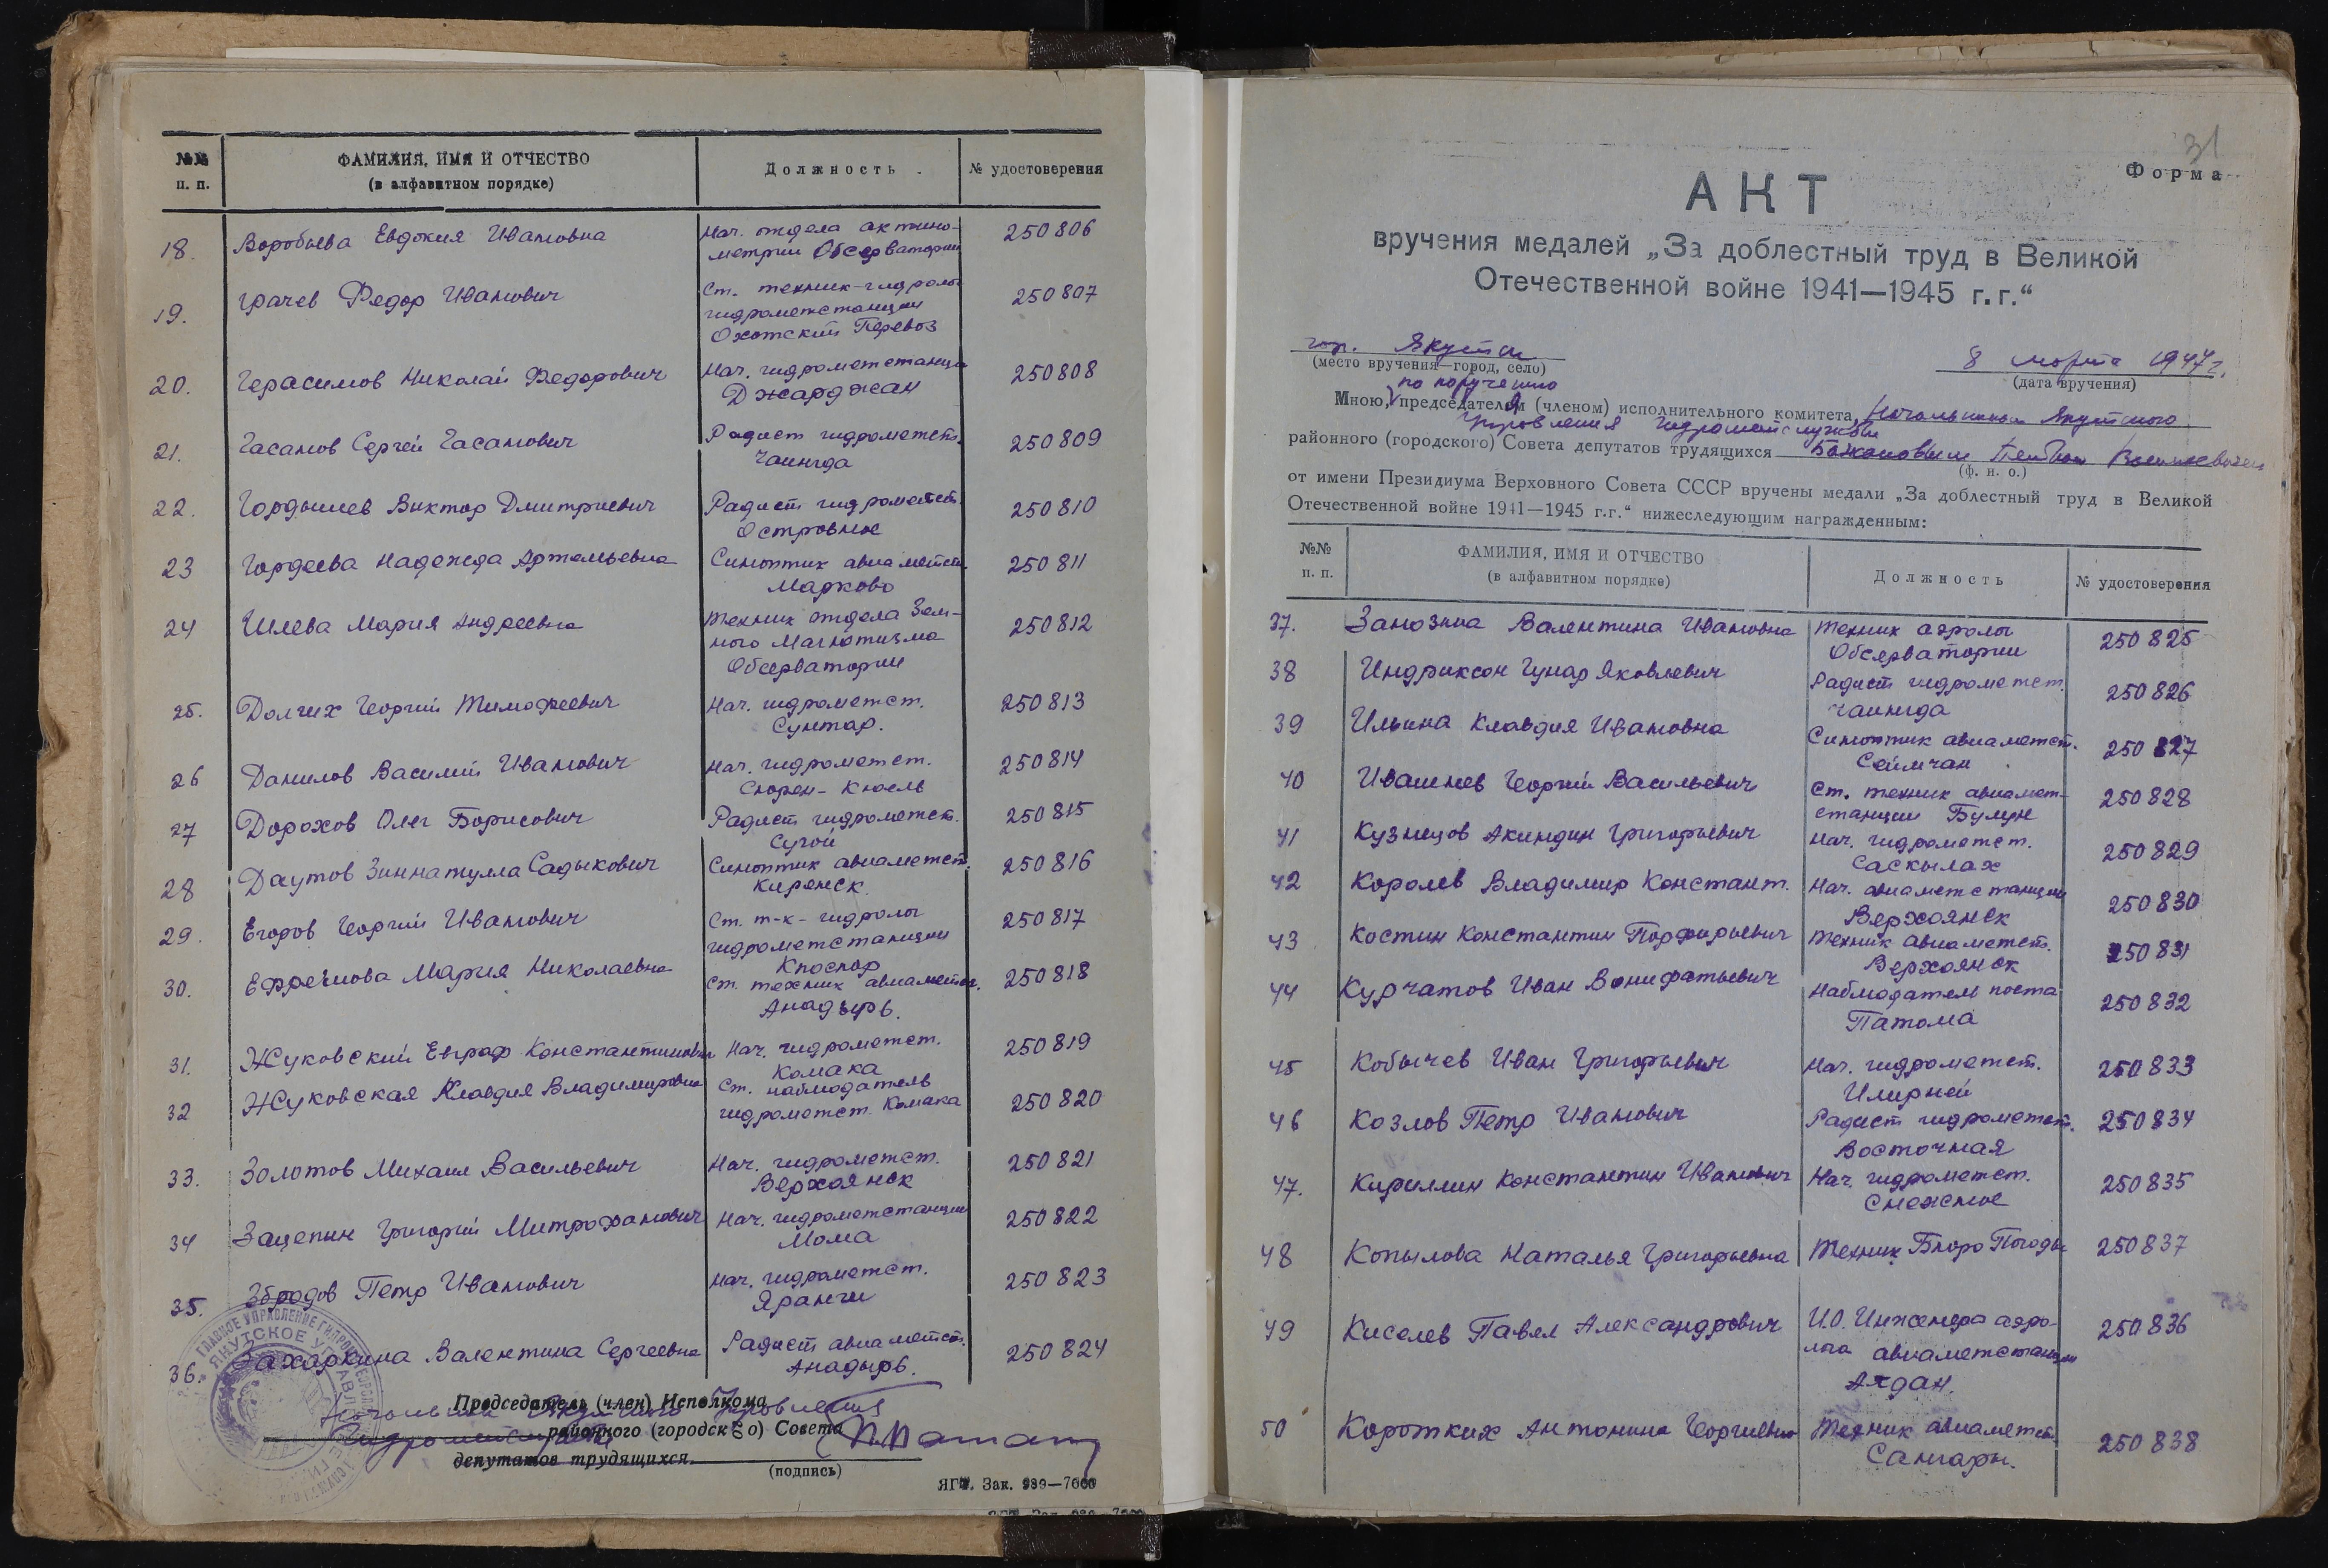 №№
п. п.
ФАМИЛИЯ, ИМЯ И ОТЧЕСТВО
(в алфавитном порядке)
Должность
№ удостоверения
18. Воробьева Евдокия Ивановна Нач. отдела актино- 250806
метрии Обсерватории
19. Грачев Федор Иванович Ст. техник-гидролог 250807
гидрометстанции
Охотский Перевоз
20. Герасимов Николай Федорович Нач. гидрометстанции 250808
Джарджан
21. Гасанов Сергей Гасанович Радист гидрометст. 250809
Чаингда
22. Гордышев Виктор Дмитриевич Радист гидрометст. 250810
Островное
23 Гордеева Надежда Артемьевна Синоптик авиаметст. 250811
Марково
24 Шлева Мария Андреевна техник отдела Зем- 250812
ного Магнетизма
Обсерватории
25. Долгих Георгий Тимофеевич Нач. гидрометст. 250813
Сунтар.
26 Данилов Василий Иванович Нач. гидрометст. 250814
Сюрен-Кюель
27 Дорохов Олег Борисович Радист гидрометст. 250815
Сугой
28 Даутов Зиннатулла Садыкович Синоптик авиаметст. 250816
Киренск.
29. Егоров Георгий Иванович Ст. т-к-гидролог 250817
гидрометстанции
Крослор
30. Ефремова Мария Николаевна Ст. техник авиаметст. 250818
Анадырь.
31. Жуковский Евграф Константинович Нач. гидрометст. 250819
Комака
32 Жуковская Клавдия Владимировна Ст. наблюдатель 250820
гидрометст. Комака
33. Золотов Михаил Васильевич Нач. гидрометст. 250821
Верхоянск
34 Зацепин Григорий Митрофанович Нач. гидрометстанции 250822
Мома
35. Збродов Петр Иванович Нач. гидрометст. 250823
Яранги
36. Захаркина Валентина Сергеевна Радист авиаметст. 250824
Анадырь.
Председатель (член) Исполкома
Начальник Якутского Управления
районного (городского) Совета
Гидрометслужбы
депутатов трудящихся
(подпись)
ЯГТ. Зак. 939—7000
31
Форма
АКТ
вручения медалей „За доблестный труд в Великой
Отечественной войне 1941—1945 г.г.“
гор. Якутск
(место вручения—город, село)
8 марта 1947 г.
(дата вручения)
по поручению
Мною, председателем (членом) исполнительного комитета, Начальником Якутского
Управления гидрометслужбы
районного (городского) Совета депутатов трудящихся
(ф. и. о.)
от имени Президиума Верховного Совета СССР вручены медали „За доблестный труд в Великой
Отечественной войне 1941—1945 г.г.“ нижеследующим награжденным:
№№
п. п.
ФАМИЛИЯ, ИМЯ И ОТЧЕСТВО
(в алфавитном порядке)
Должность
№ удостоверения
37. Занозина Валентина Ивановна техник аэролог 250825
Обсерватории
38 Индриксон Гунар Яковлевич Радист гидрометст. 250826
Чаингда
39 Ильина Клавдия Ивановна Синоптик авиаметст. 250827
Сеймчан
40 Ивашнев Георгий Васильевич Ст. техник авиамет- 250828
станции Булун
41 Кузнецов Акиндин Григорьевич Нач. гидрометст. 250829
Саскылах
42 Королев Владимир Констант. Нач. авиаметстанции 250830
Верхоянск
43 Костин Константин Порфирьевич техник авиаметст. 250831
Верхоянск
44 Курчатов Иван Вонифатьевич Наблюдатель поста 250832
Патома
45 Кобычев Иван Григорьевич Нач. гидрометст. 250833
Илирней
46 Козлов Петр Иванович Радист гидрометст. 250834
Восточная
47. Кириллин Константин Иванович Нач. гидрометст. 250835
Снежное
48 Копылова Наталья Григорьевна Техник Бюро Погоды 250837
49 Киселев Павел Александрович И.О. Инженера аэро- 250836
лога авиаметстанции
Алдан.
50 Коротких Антонина Георгиевна Техник авиаметст. 250838
Сангары.